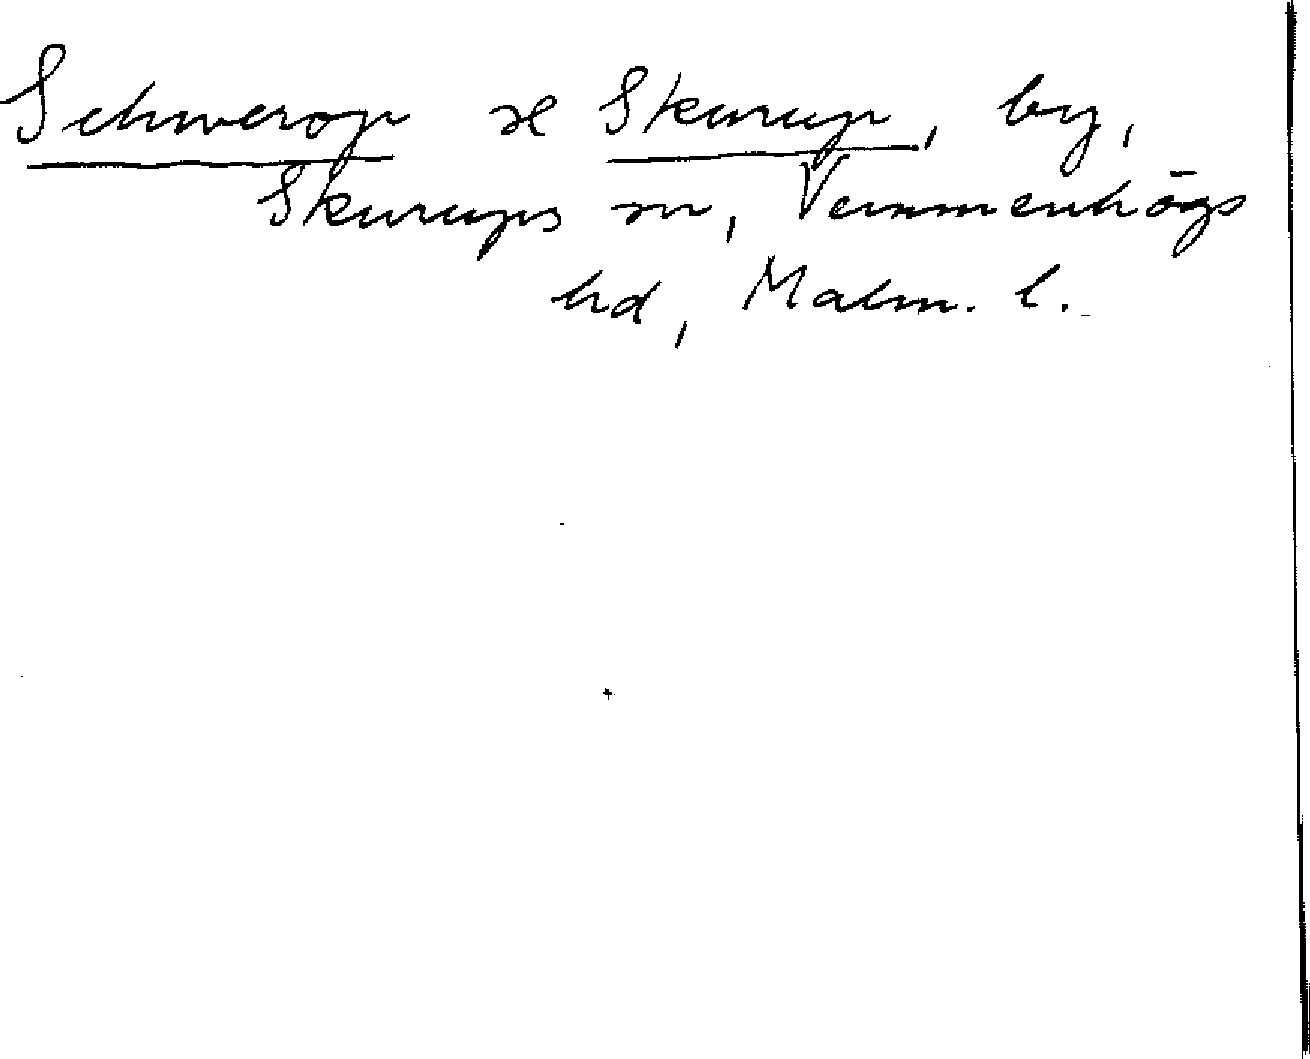 Schwerop se Skurup, by,
Skurups sn, Vemmenhögs
hd, Malm. l.